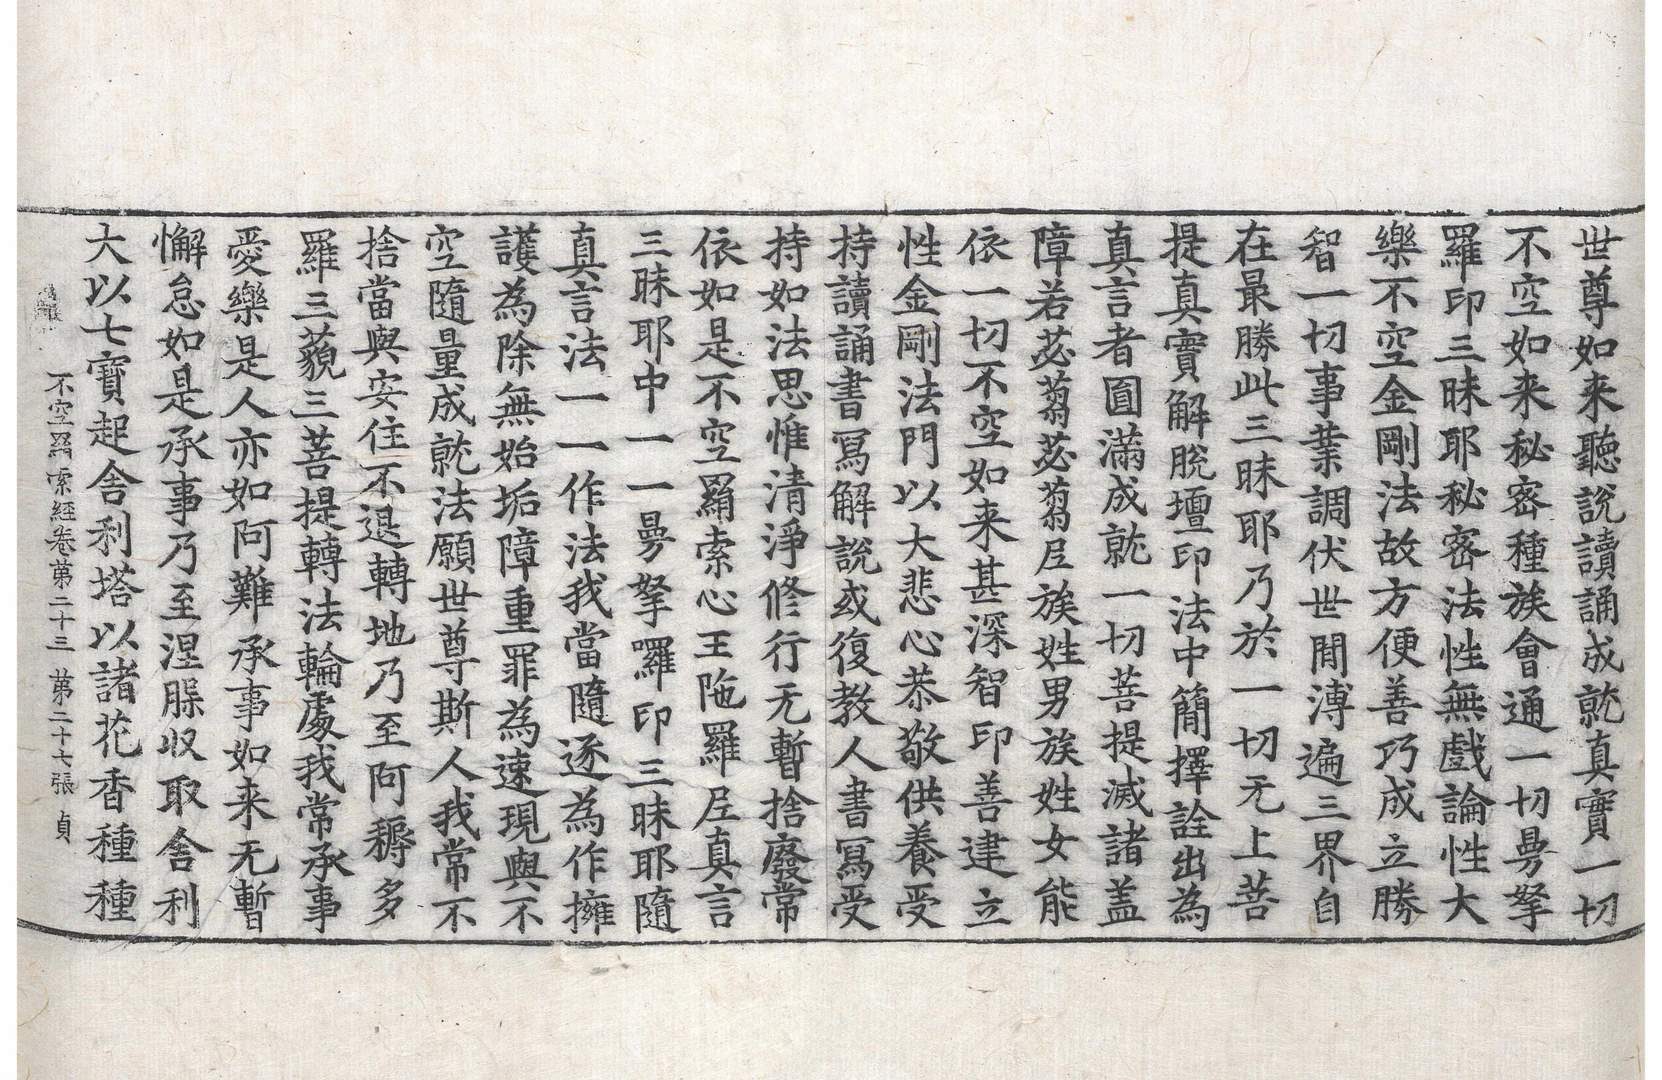 世尊如来聽說讀誦成就真實一切
不空如来秘密種族會通一切曼拏
羅印三昧耶秘密法性無戲論性大
樂不空金剛法故方便善巧成立勝
智一切事業調伏世間溥遍三界自
在最勝此三昧耶乃於一切无上菩
提真實解脫壇印法中簡擇詮出為
真言者圓滿成就一切菩提滅諸盖
障若苾蒭苾蒭尼族姓男族姓女能
依一切不空如来甚深智印善建立
性金剛法門以大悲心恭敬供養受
持讀誦書寫解說或復教人書寫受
持如法思惟清淨修行无暫捨廢常
依如是不空羂索心王陁羅尼真言
三昧耶中一一曼拏囉印三昧耶隨
真言法一一作法我當隨逐為作擁
護為除無始垢障重罪為速現與不
空隨量成就法願世尊斯人我常不
捨當與安住不退轉地乃至阿耨多
羅三藐三菩提轉法輪處我常承事
愛樂是人亦如阿難承事如来无暫
懈怠如是承事乃至涅槃収取舍利
大以七寶起舍利塔以諸花香種種
不空羂索經卷苐二十三　苐二十七張　貞